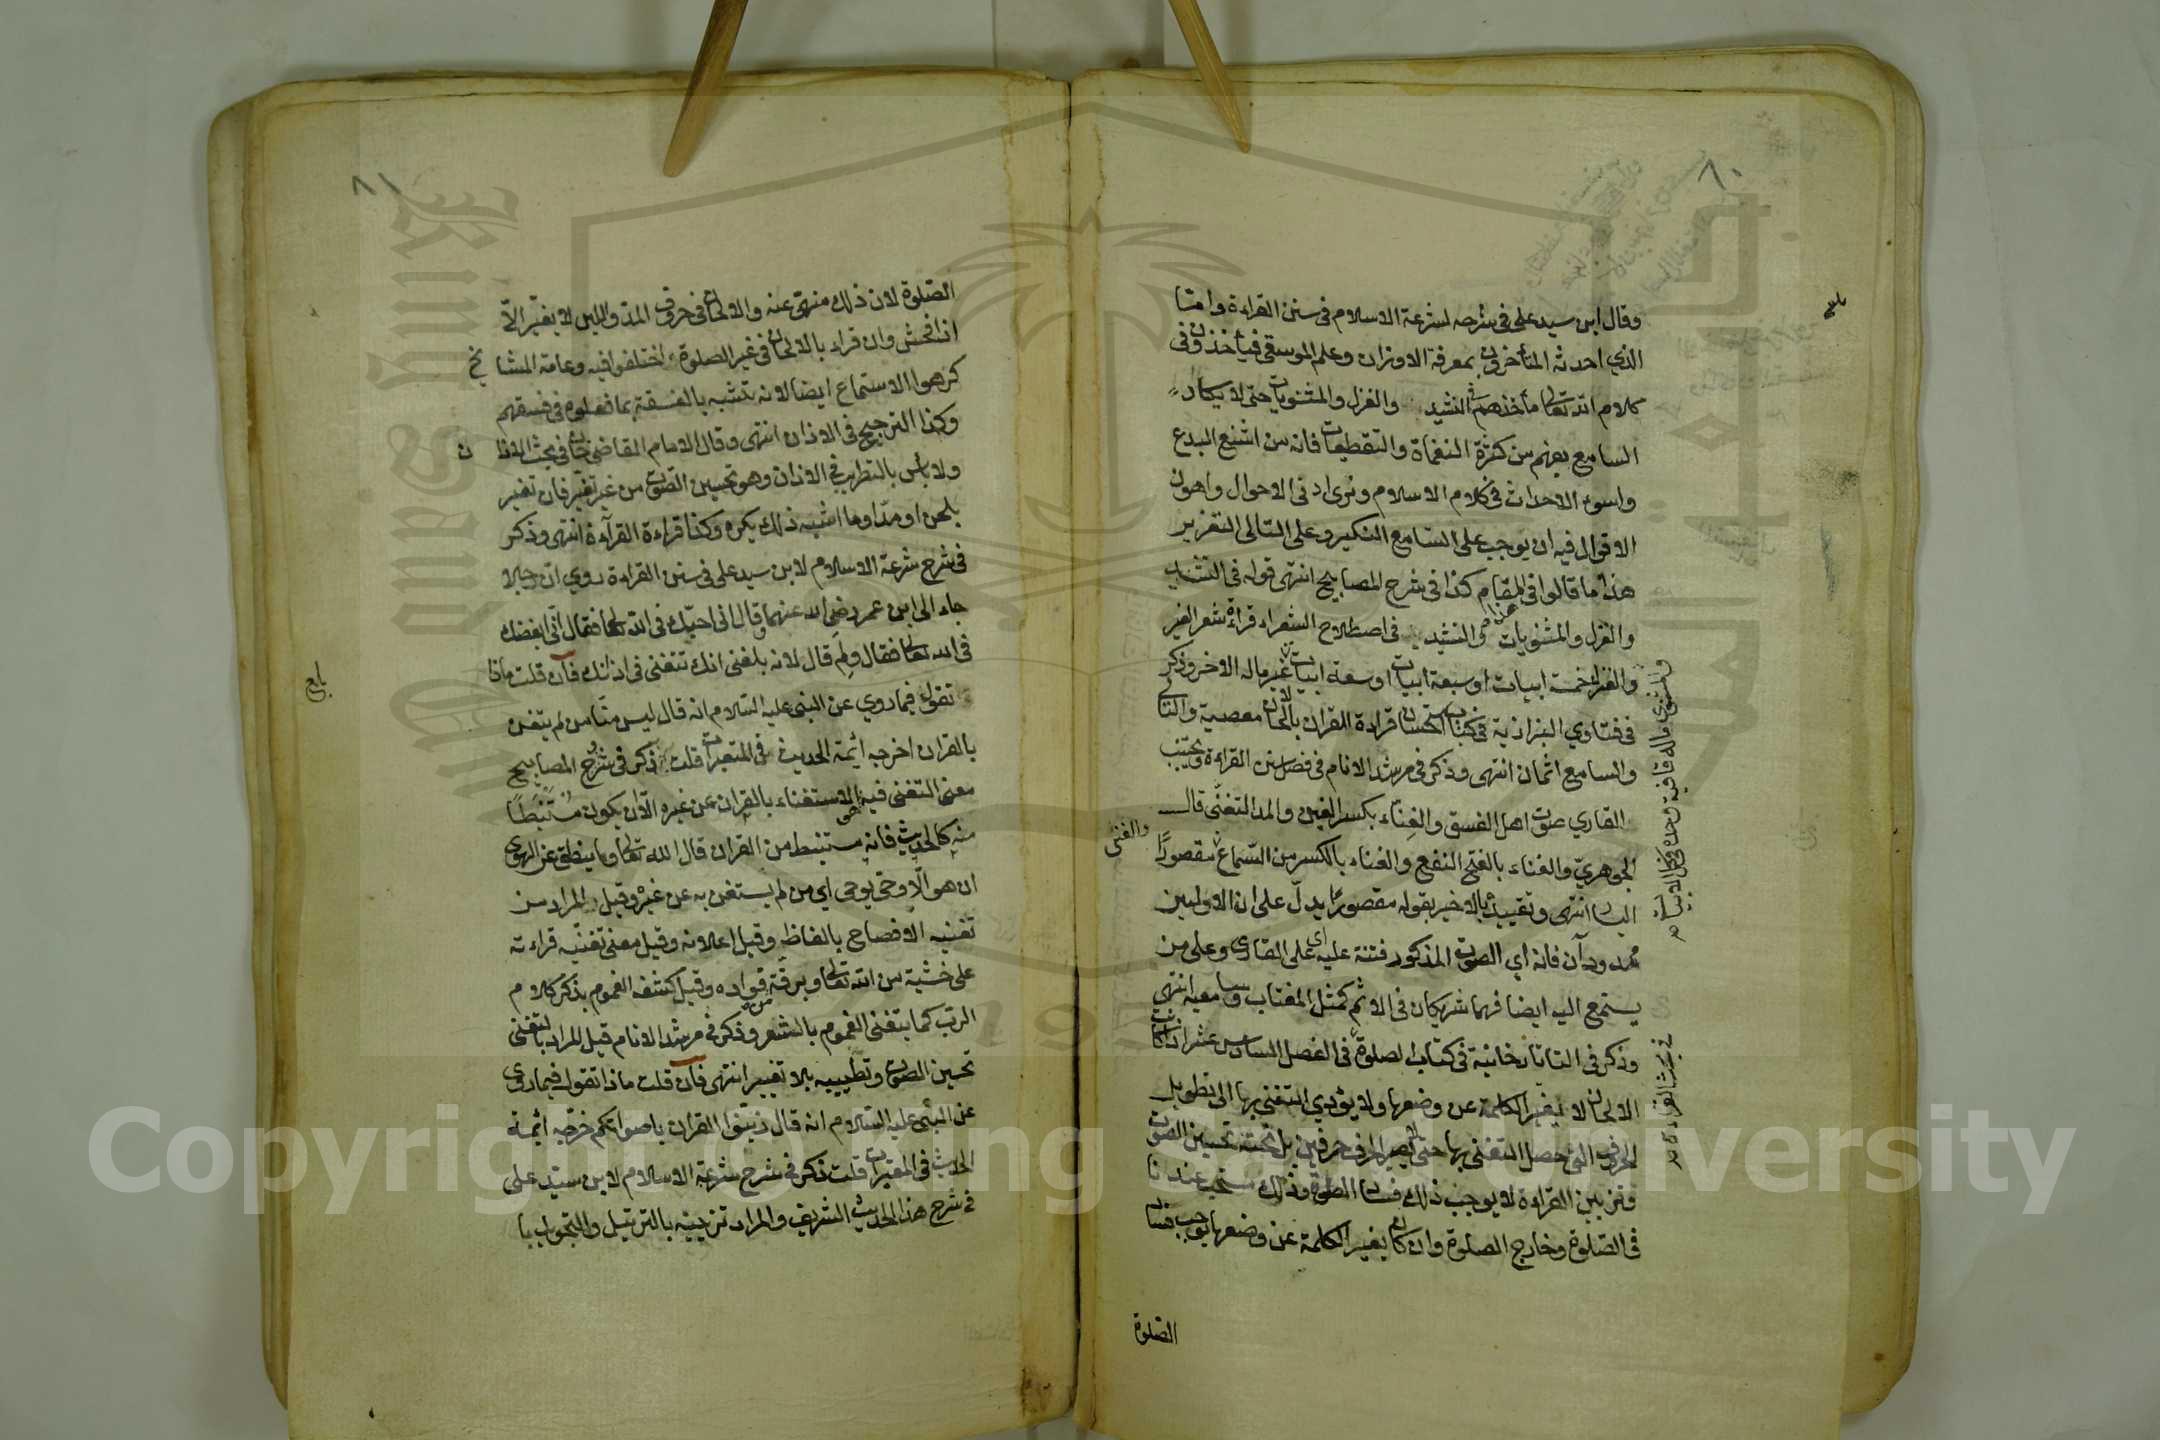 ٨٠
وقال ابن سيد على فى شرحه لشرعة الاسلام فى سنن القراءة وامّا
الذي احدثه المتأخرون بمعرفة الاوزان وعلم الموسقى فيأخذون فى
كلام الله تعالى مأخذهم فى النشيد والغزل والمثنويات حتى لا يكاد
السامع يفهم من كثرة النغماة والتقطيعات فانه من اشنع البدع
واسوء الاحداث فى كلام الاسلام ونرى ادنى الاحوال واهون
الاقوال فيه ان يوجب على السامع النكير وعلى التالى التعزير
هذا ما قالوا فى المقام كذا فى شرح المصابيح انتهى قوله فى النشيد
والغزل والمثنويات والنشيد فى اصطلاح الشعراء قراءة شعر الغير
والغزل خمسة ابيات او سبعة ابيات او سعة ابيات غير ماله الاخر وذكر
فى فتاوي البزازية فى كتاب الاستحسان قراءة القران بالالحان معصية والتالى
والسامع اثمان انتهى وذكر فى مرشد الانام فى فصل سنن القراءة ويجتنب
القاري صوت اهل الفسق والغناء بكسر الغين والمد التغنّى قال
الجوهريّ والغناء بالفتح النفع والغناء بالكسر من السّماع مقصورًا
والغنى
اليسار انتهى وتقييده بالاخير بقوله مقصورًا يدلّ على ان الاولين
ممدودان فانه اي الصوت المذكور فتنة عليه اى على القارى وعلى من
يستمع اليه ايضا فهما شريكان فى الاثم كمثل المغتاب وسامعيه انتهى
وذكر فى التاتارخانية فى كتاب الصلوة فى الفصل السادس عشر اذا كانت
الالحان لا يغير الكلمة عن وضعها ولا يؤدي التغنى بها الى تطويل
الحروف التى حصل التغنى بها حتى لا يصير الحرف حرفين بل تحته تحسين الصوت
وتزيين القراءة لا يوجب ذلك فساد الصلوة وذلك مستحب عندنا
فى الصّلوة وخارج الصلوة وان كان يغير الكلمة عن وضعها يوجب فساد
الصّلوة
٨١
الصّلوة لان ذلك منهىّ عنه والالحان فى حروف المدّ واللين لا يغيّر الاّ
اذا فحش وان قراء بالالحان فى غير الصلوة اختلفوا فيه وعامة المشايخ
كرهوا الاستماع ايضا لانه تشبه بالفسقة بما فعلوه فى فسقهم
وكذا الترجيح فى الاذان انتهى وقال الامام القاضى خان فى بحث الاذان
ولا بأس بالتطريب فى الاذان وهو تحسين الصّوت من غير تغيّر فان تغير
بلحن او مدّ او ما اشبه ذلك يكره وكذا قراءة القرآءة انتهى وذكر
فى شرح شرعة الاسلام لابن سيد على فى سنن القراءة روي ان رجلا
جاء الى ابن عمر رضى الله عنهما وقال انى احبّك فى الله تعالى فقال انّى ابغضك
فى الله تعالى فقال ولِمَ قال لانه بلغنى انك تتغنى فى اذانك فان قلت ماذا
تقول فيما روي عن النبى عليه السّلام انه قال ليس منّا من لم يتغن
بالقران اخرجه ائمة الحديث فى المعتبرات قلت ذكر فى شروح المصابيح
معنى التغنى فيه الاستغناء بالقران عن غيره الّا ان يكون مُسْتَنْبَطًا
منه كالحديث فانه مستنبط من القران قال الله تعالى وما ينطق عن الهوى
ان هو الّا وحى يوحى اي من لم يستغن به عن غيره وقيل المراد من
تغنيه الافصاح بالفاظه وقيل اعلانه وقيل معنى تغنيّه قراءته
على خشية من الله تعالى وبرقّة فواده وقيل كشف الغموم بذكر كلام
الربّ كما يتغنى الغموم بالشعر وذكر فى مرشد الانام قيل المراد بالتغنى
تحسين الصوت وتطييبه بلا تغيير انتهى فان قلت ماذا تقول فيما روى
عن النبى عليه السّلام انه قال زيّنوا القران باصواتكم خرّجه ائمة
الحديث فى المعتبرات قلت ذكر فى شرح شرعة الاسلام لابن سيّد على
فى شرح هذا الحديث الشريف والمراد تزيينه بالترتيل والتجويد
Copyright © King Saud University